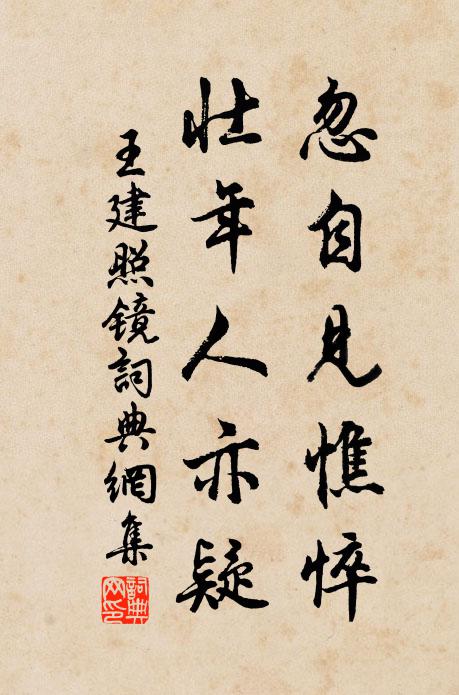 忽自見憔悴
壯年人亦疑
王建照鏡詞典網集
詞典網印